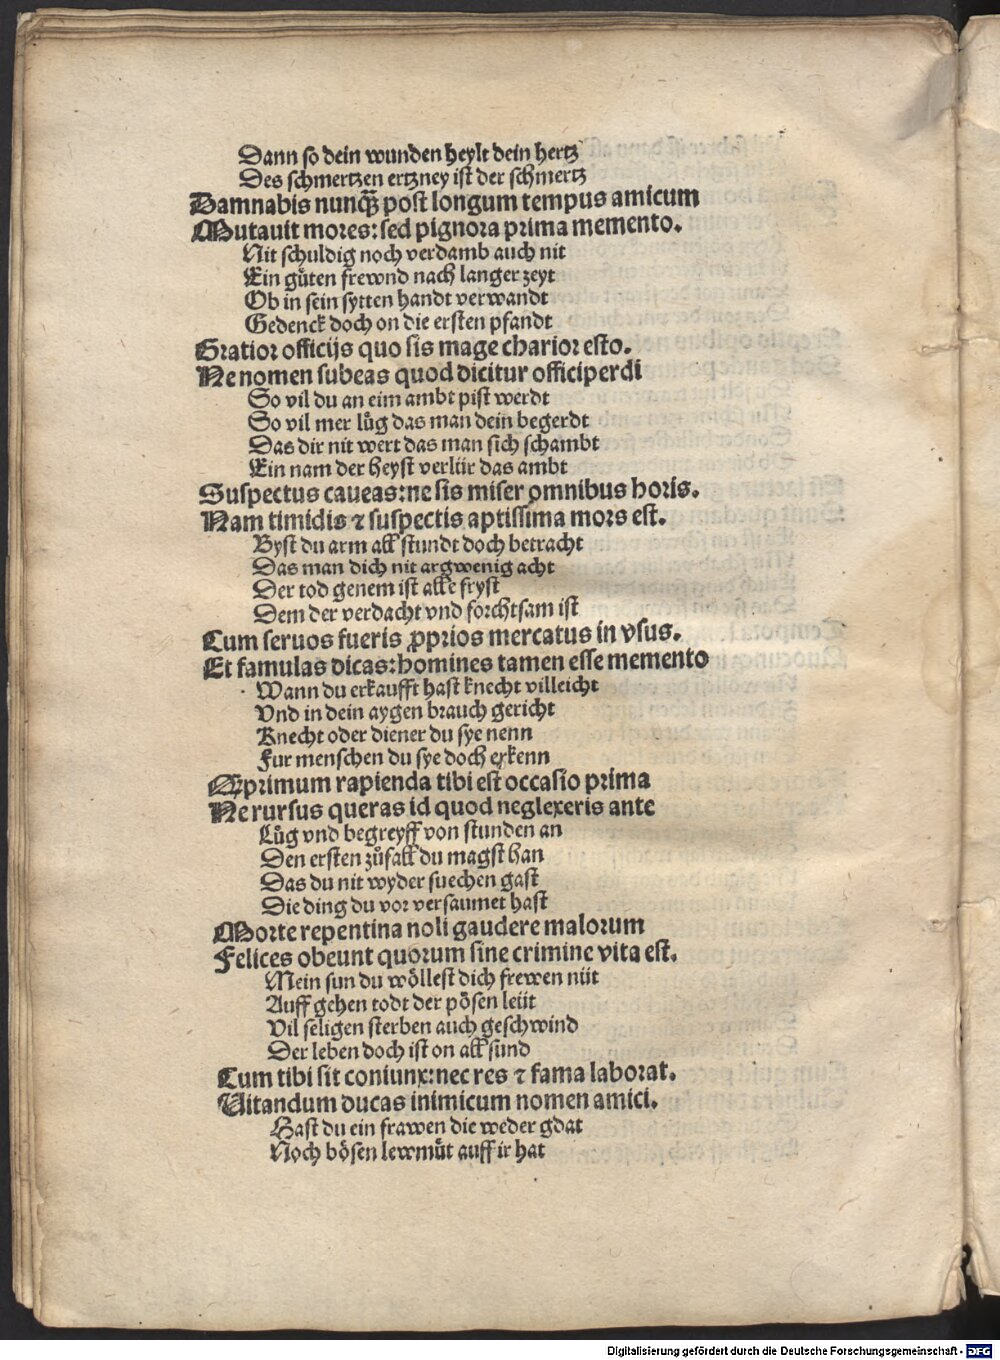 Dann so dein wunden heylt dein hertz
Des schmertzen ertzney ist der schmertz
Damnabis nunqꝫ post longum tempus amicum
Mutauit mores: sed pignora prima memento.
Nit schuldig noch verdamb auch nit
Ein gůten frewnd nach langer zeyt
Ob in sein sytten handt verwandt
Gedenck doch on die ersten pfandt
Gratior officijs quo sis mage charior esto.
Ne nomen subeas quod dicitur officiperdi
So vil du an eim ambt pist werdt
So vil mer lůg das man dein begerdt
Das dir nit wert das man sich schambt
Ein nam der heyst verlür das ambt
Suspectus caueas: ne sis miser omnibus horis.
Nam timidis ⁊ suspectis aptissima mors est.
Byst du arm all stundt doch betracht
Das man dich nit argwenig acht
Der tod genem ist alle fryst
Dem der verdacht vnd forchtsam ist
Cum seruos fueris ꝓprios mercatus in vsus.
Et famulas dicas: homines tamen esse memento
Wann du erkaufft hast knecht villeicht
Vnd in dein aygen brauch gericht
Knecht oder diener du sye nenn
Fur menschen du sye doch erkenn
Qꝙprimum rapienda tibi est occasio prima
Ne rursus queras id quod neglexeris ante
Lůg vnd begreyff von stunden an
Den ersten zůfall du magst han
Das du nit wyder suechen gast
Die ding du vor versaumet hast
Morte repentina noli gaudere malorum
Felices obeunt quorum sine crimine vita est.
Mein sun du wöllest dich frewen nüt
Auff gehen todt der pösen leüt
Vil seligen sterben auch geschwind
Der leben doch ist on all sund
Cum tibi sit coniunx: nec res ⁊ fama laborat.
Uitandum ducas inimicum nomen amici.
Hast du ein frawen die weder gdat
Noch bösen lewmůt auff ir hat
Digitalisierung gefördert durch die Deutsche Forschungsgemeinschaft - DFG